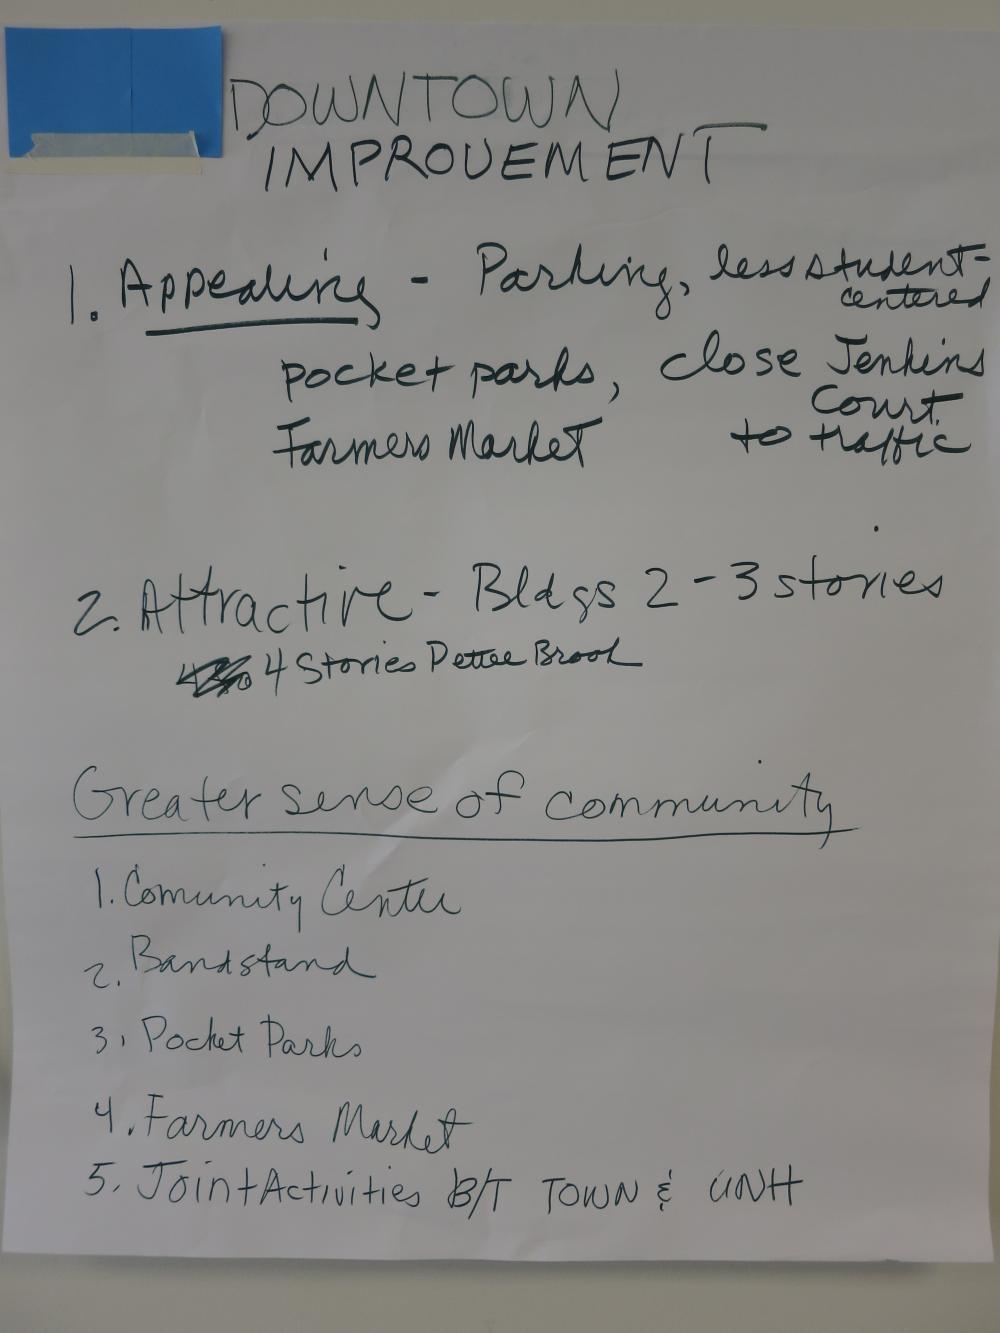 DOWNTOWN
IMPROVEMENT
1. Appealing - Parking, less student-
centered
pocket parks, close Jenkins
Court
Farmers Market to traffic
2. Attractive - Bldgs 2-3 stories
4 Stories Pettee Brook
Greater sense of community
1. Comunity Center
2. Bandstand
3. Pocket Parks
4. Farmers Market
5. Joint Activities B/T TOWN & UNH